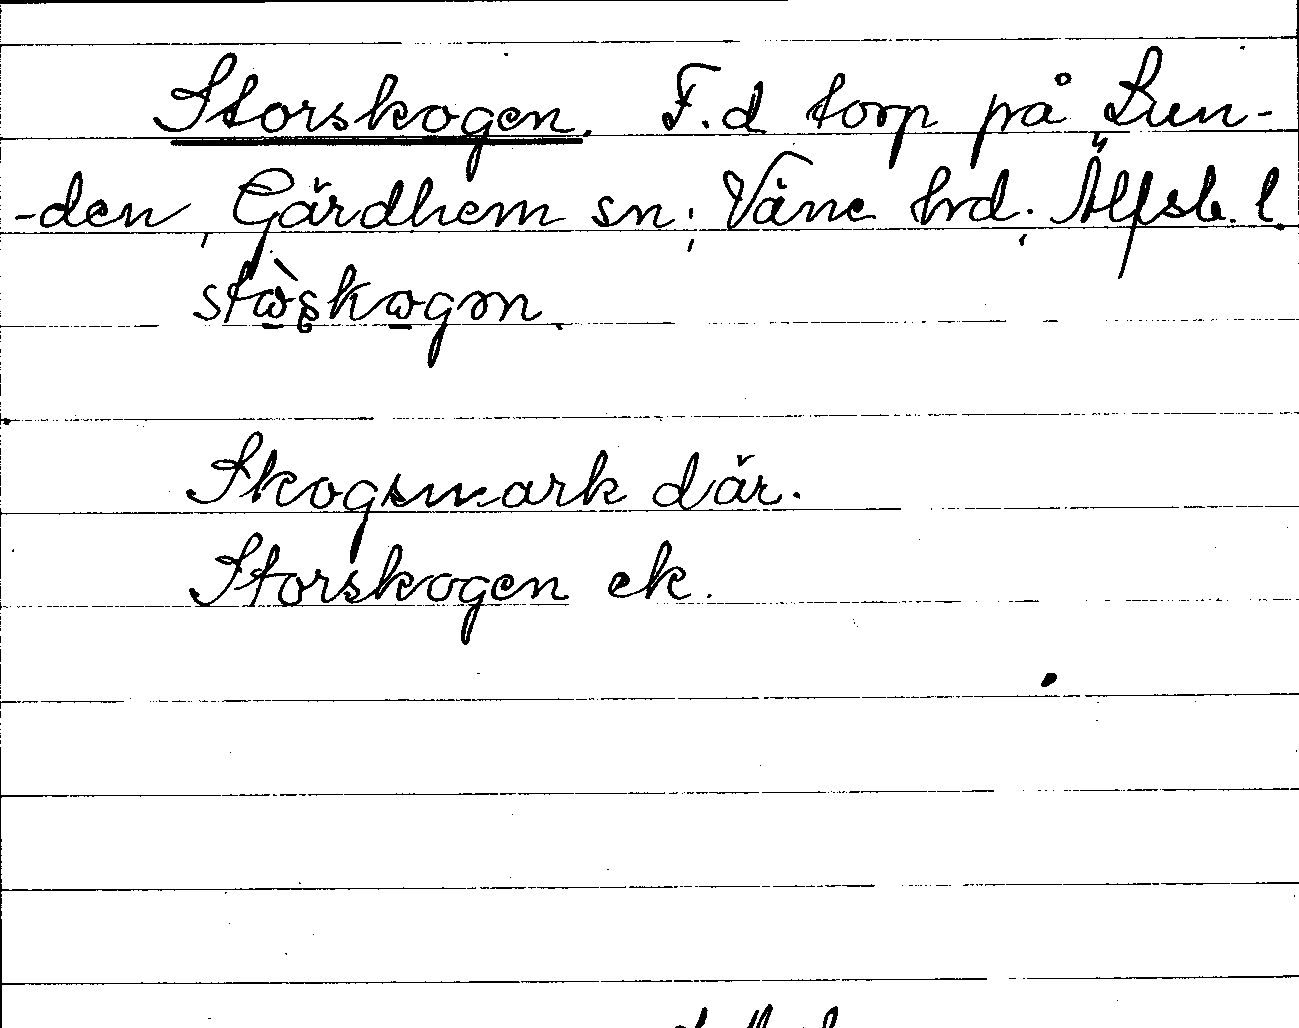 Storskogen. F.d torp på Lun-
-den, Gärdhem sn; Väne hrd; Älfsb. l.
stὼ̲şkω̲gən.
Skogsmark där.
Storskogen ek.